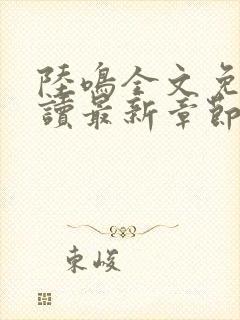 陸鳴全文免
讀最新章節
東峻